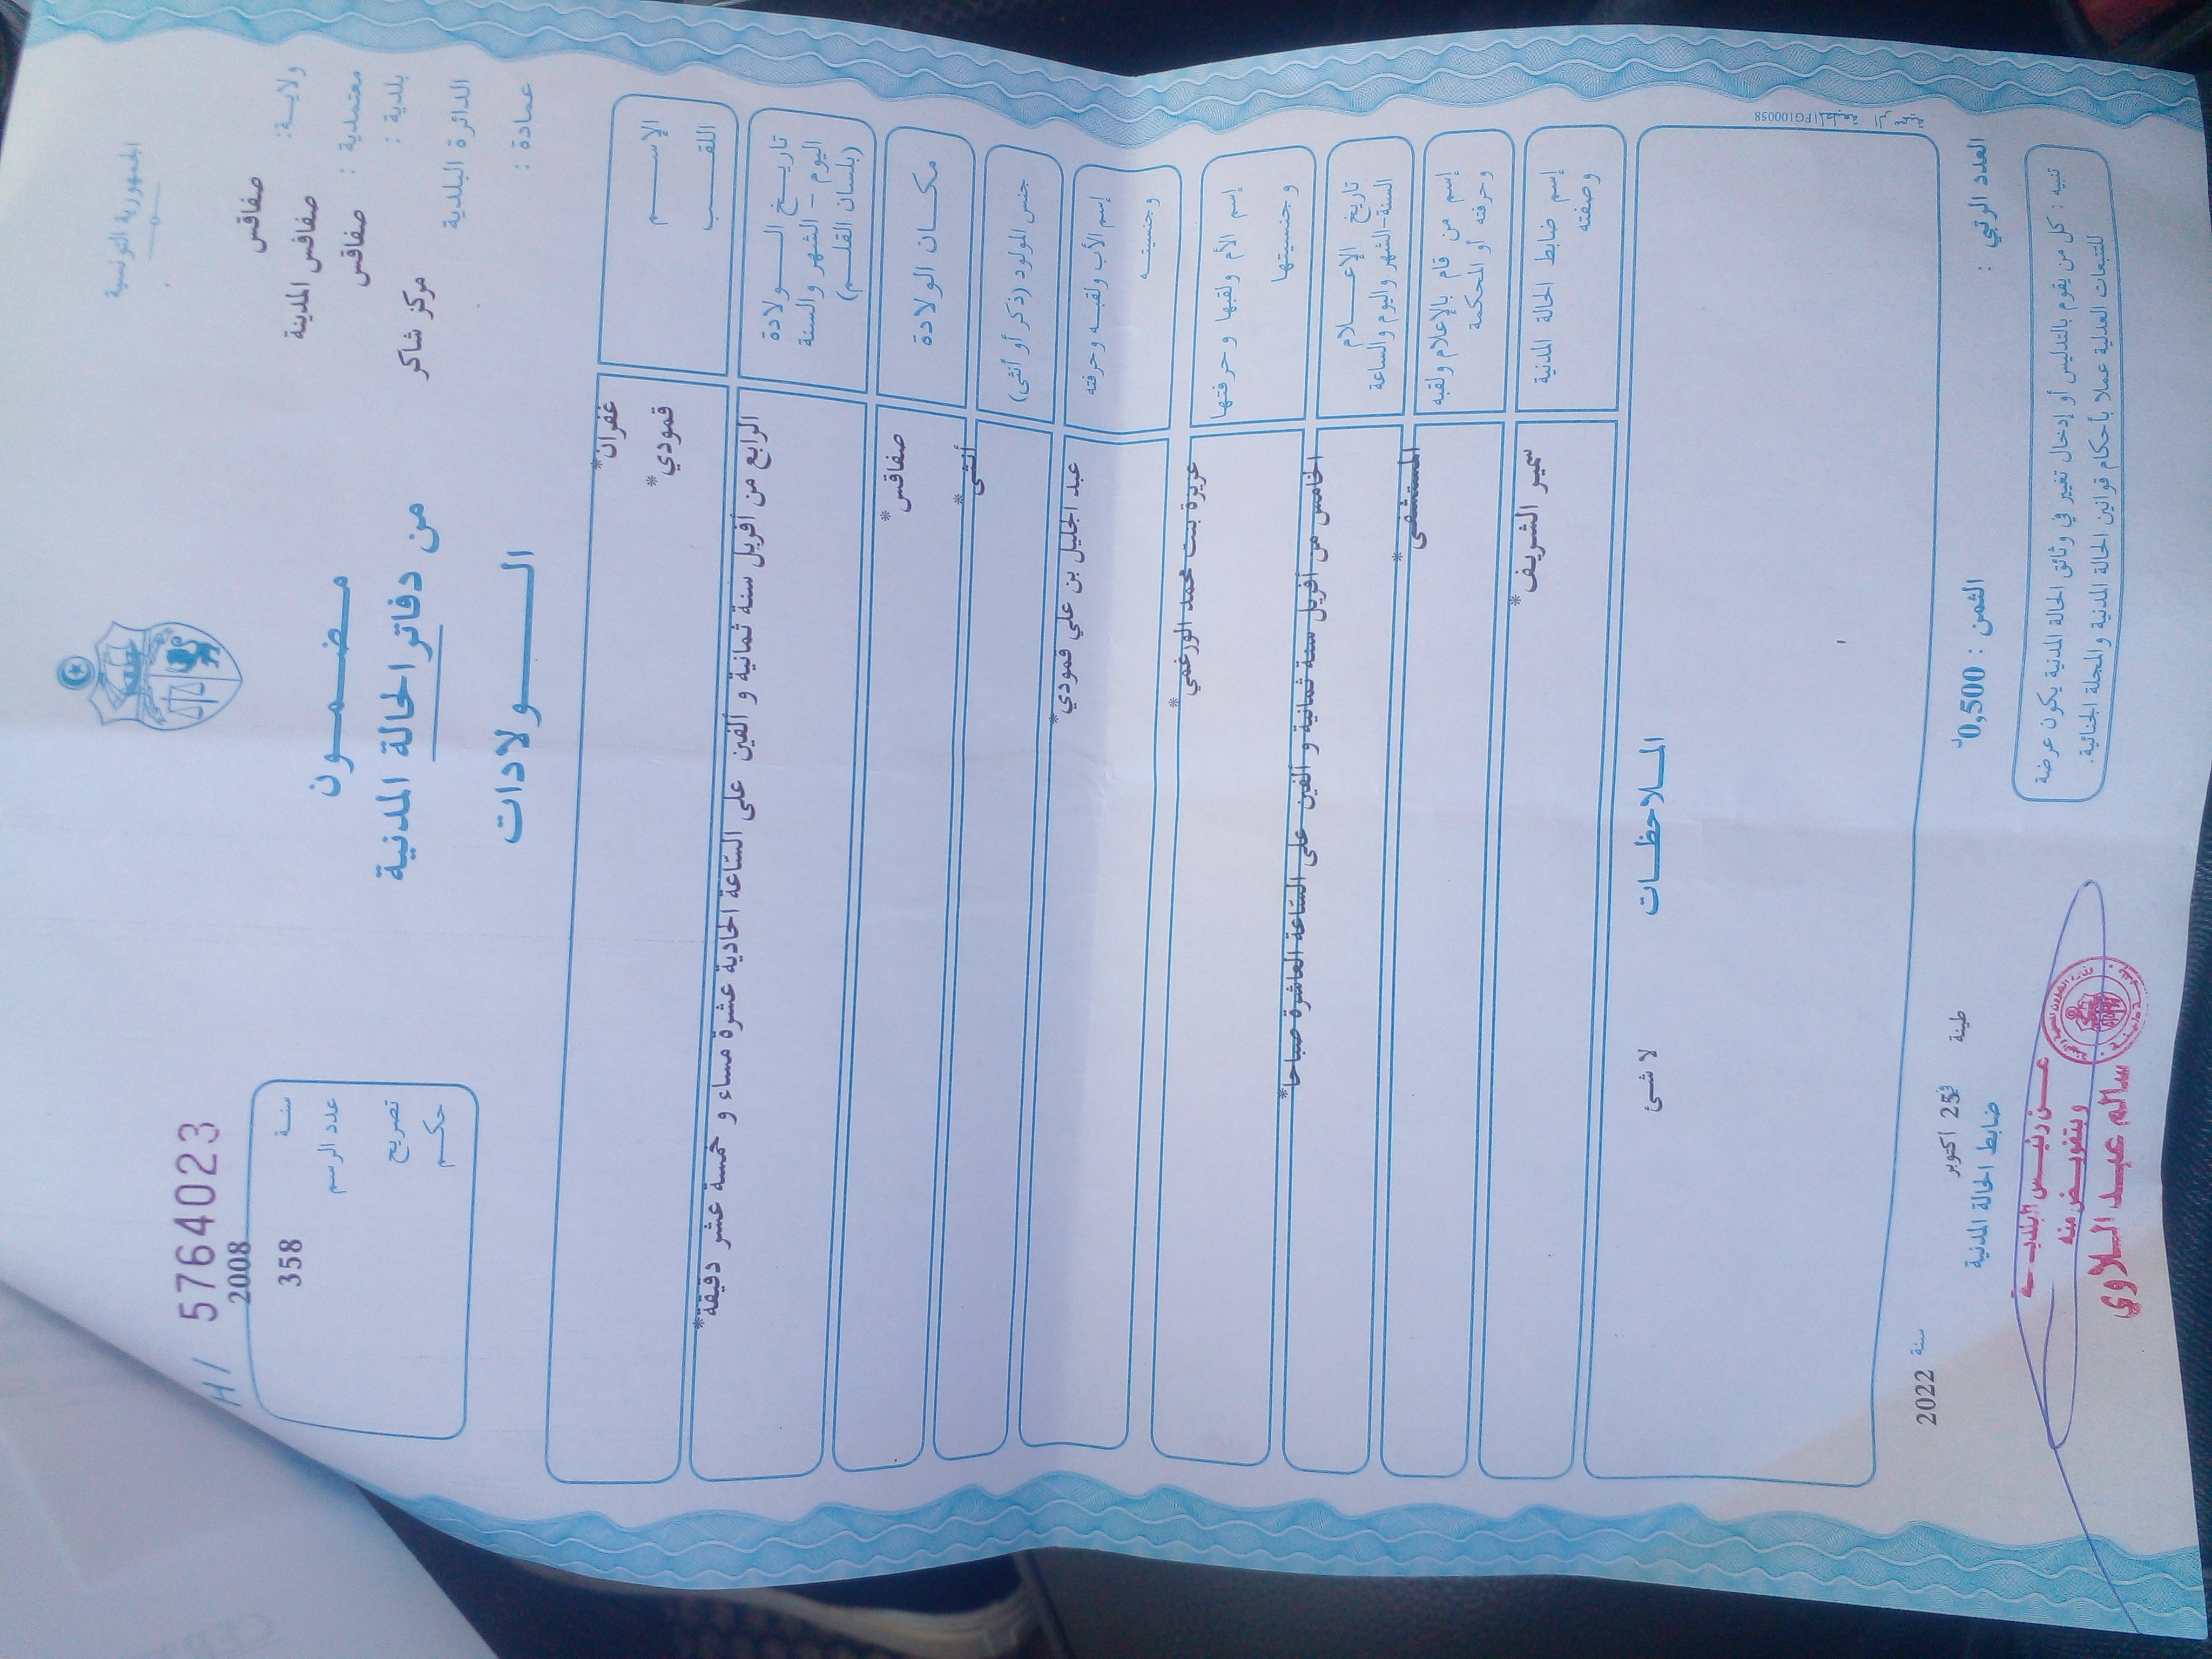 الجمهورية التونسية
ولاية: صفاقس
معتمدية : صفاقس المدينة
بلدية : صفاقس
الدائرة البلدية مركز شاكر
عمادة :
مضمون
من دفاتر الحالة المدنية
الولادات
H/ 5764023
سنة 2008
عدد الرسم 358
تصريح
حكم
الإسم غفران*
اللقب قمودي*
تاريخ الولادة
اليوم - الشهر والسنة
(بلسان القلم)
الرابع من أفريل سنة ثمانية و ألفين على السّاعة الحادية عشرة مساء و خمسة عشر دقيقة*
مكان الولادة صفاقس*
جنس المولود (ذكر أو أنثى) أنثى*
إسم الأب ولقبه وحرفته
وجنسيته
عبد الجليل بن علي قمودي*
إسم الأم ولقبها وحرفتها
وجنسيتها
عزيزة بنت محمد الورغمي*
تاريخ الإعلام
السنة-الشهر واليوم والساعة
الخامس من أفريل سنة ثمانية و ألفين على السّاعة العاشرة صباحا*
إسم من قام بالإعلام ولقبه
وحرفته أو المحكمة
المستشفى*
إسم ضابط الحالة المدنية
وصفته
سمير الشريف*
الملاحظات
لا شئ
العدد الرتبي :
الثمن : 0,500د
طينة في 25 اكتوبر سنة 2022
ضابط الحالة المدنية
تنبيه : كل من يقوم بالتدليس أو إدخال تغيير في وثائق الحالة المدنية يكون عرضة
للتتبعات العدلية عملا بأحكام قوانين الحالة المدنية والمجلة الجنائية.
عن رئيس البلدية
وبتفويض منه
سالم عبد السلاوي